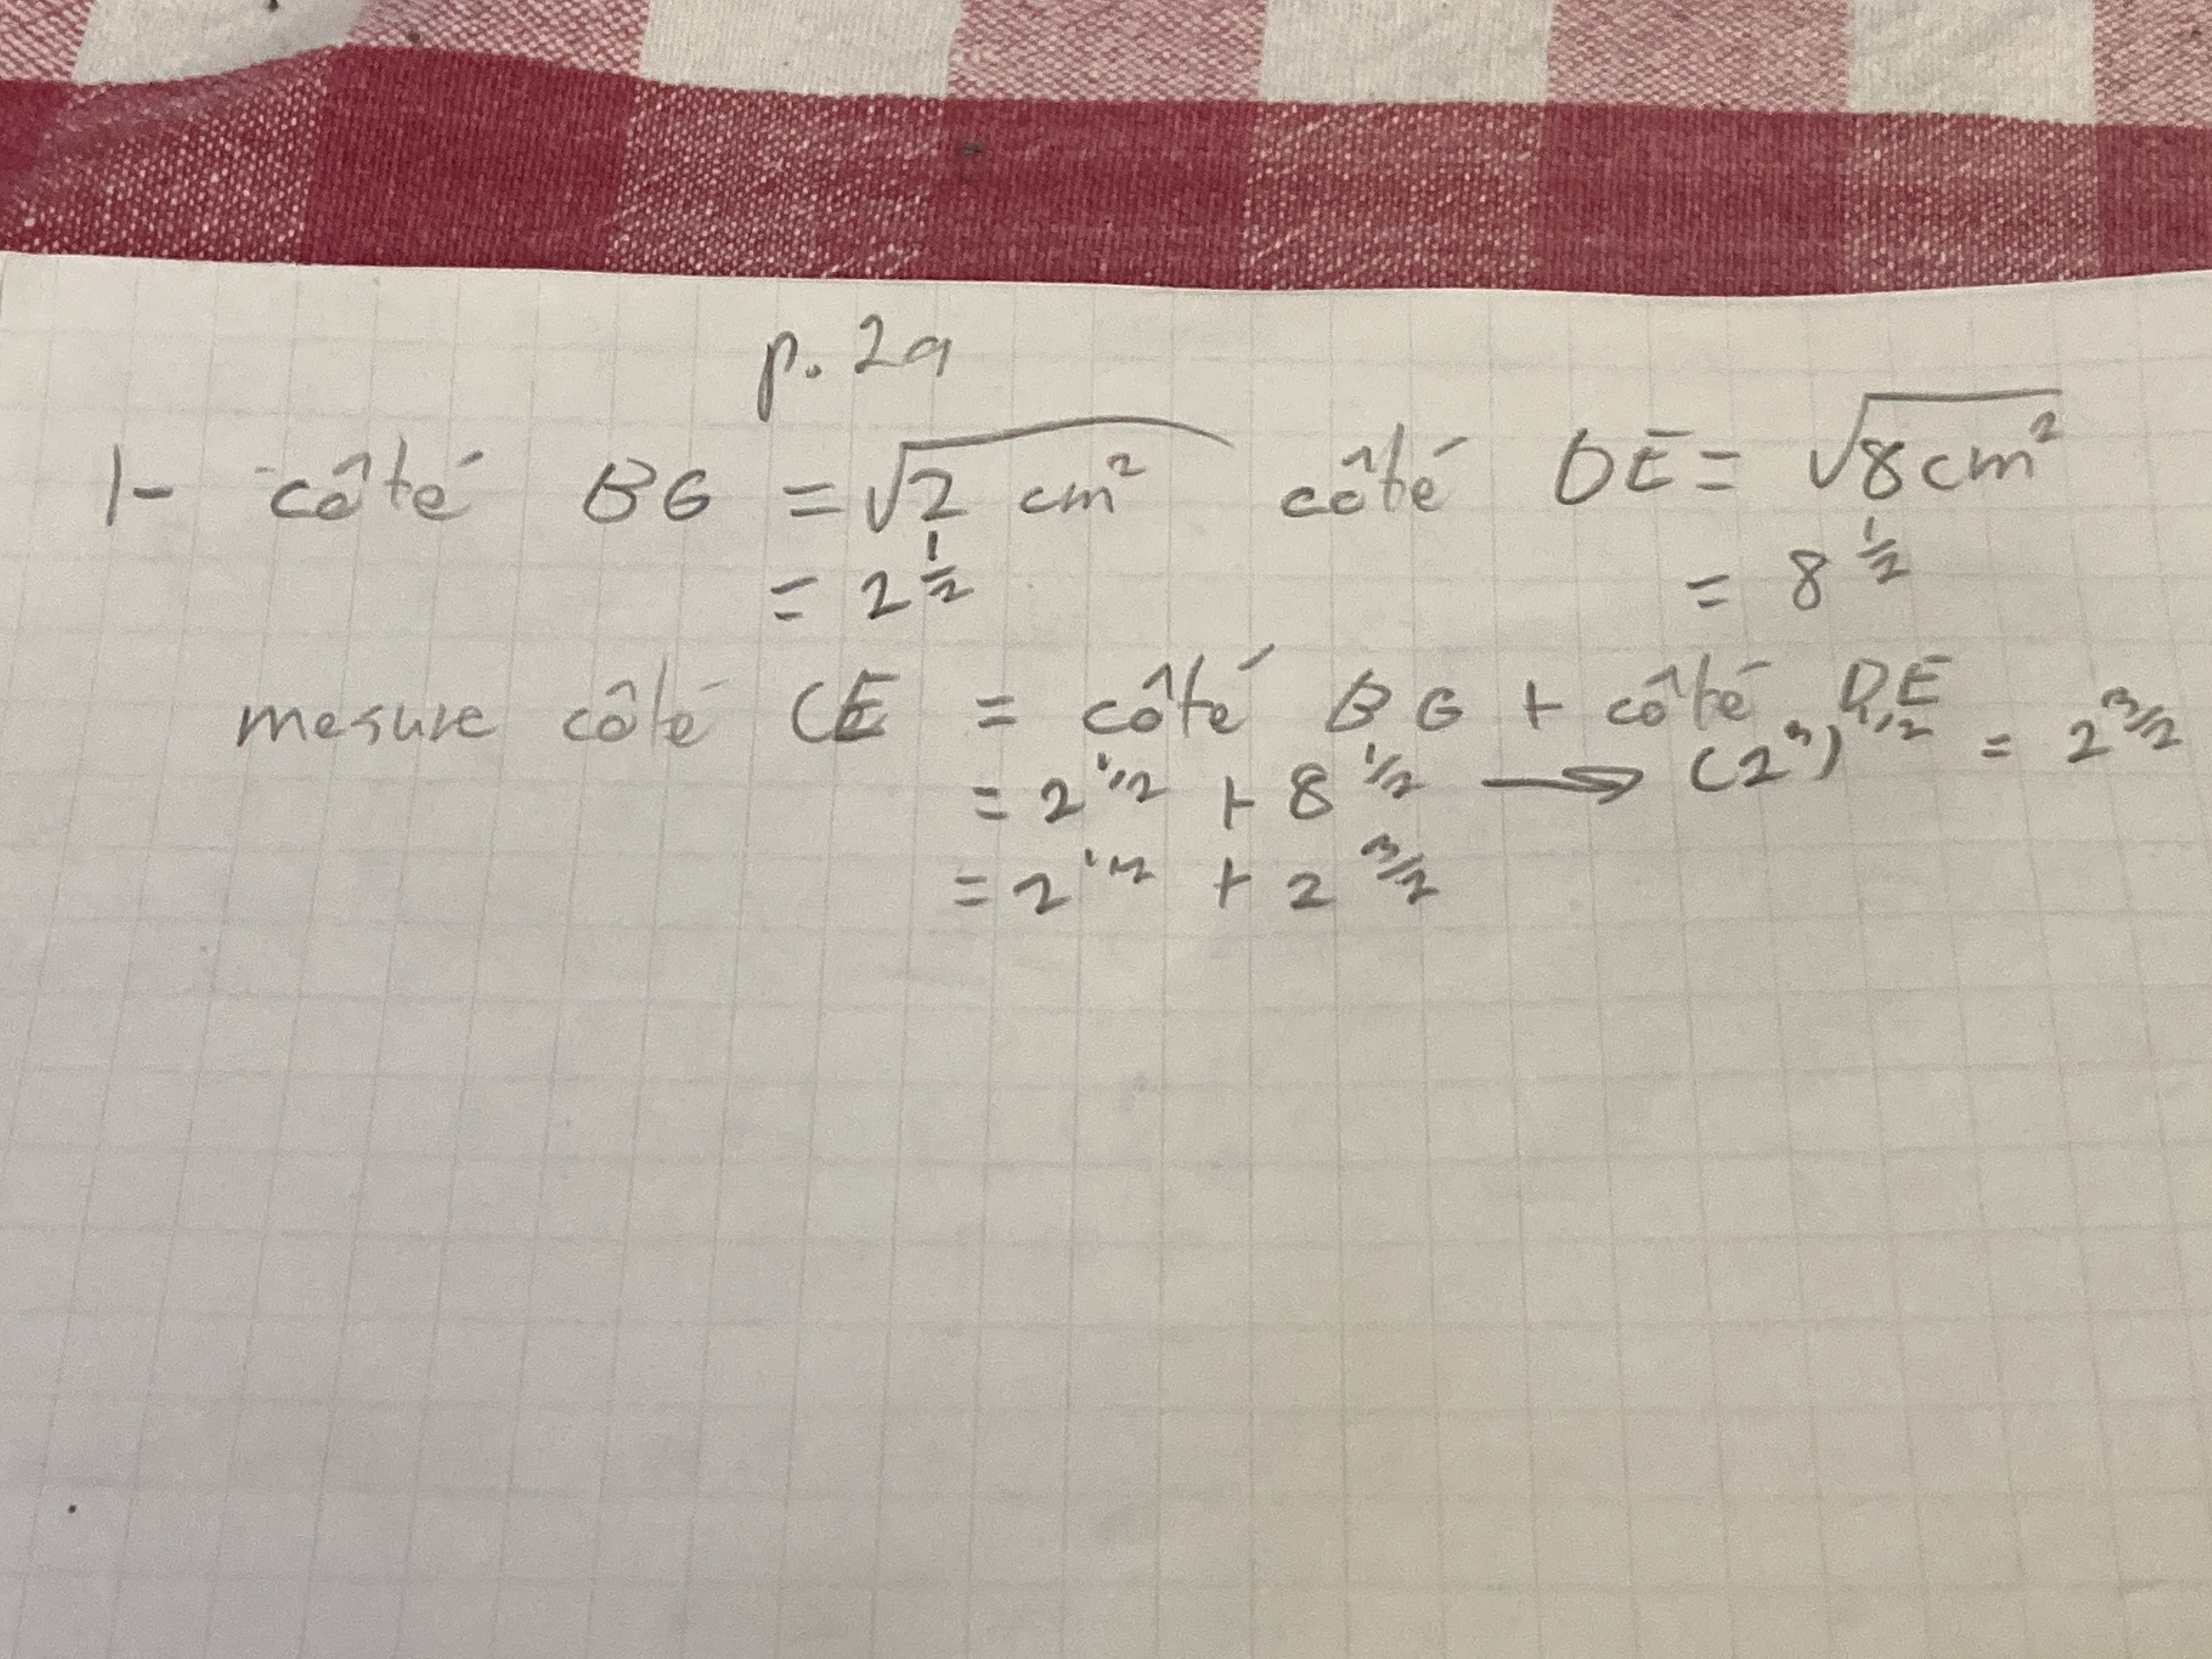 p. 29
1- côté BG = √2 cm² côté DE = √8cm²
= 2^1/2 = 8^1/2
mesure côté CE = côté BG + côté DE
= 2^1/2 + 8^1/2 → (2³)^1/2 = 2^3/2
= 2^1/2 + 2^3/2